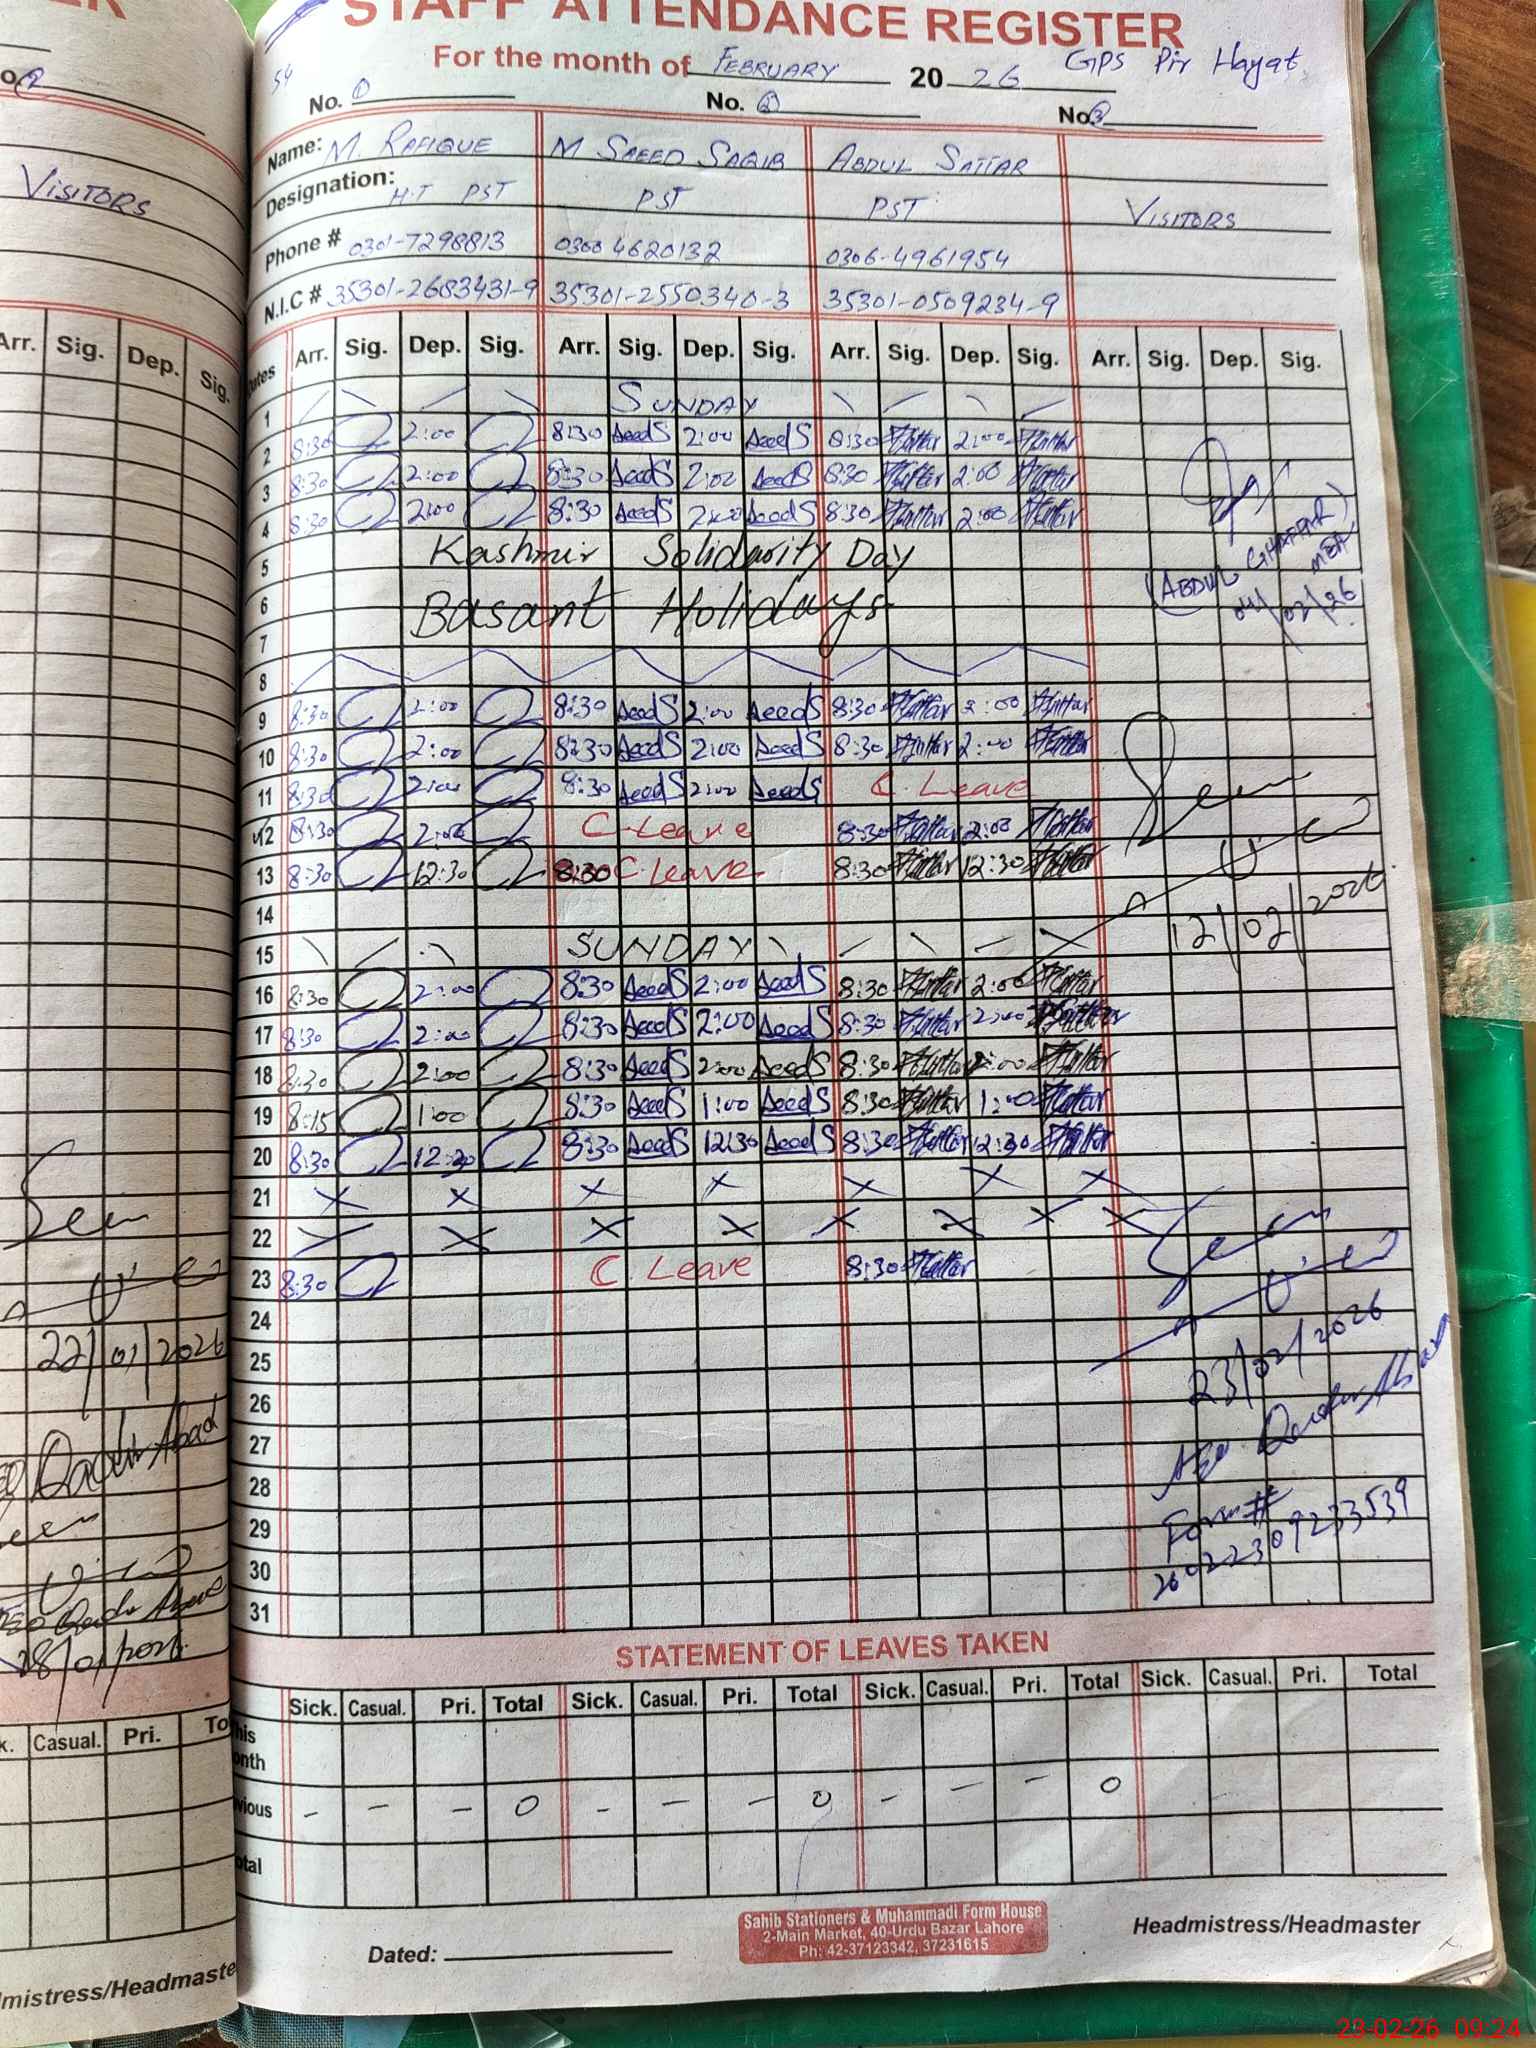 STAFF ATTENDANCE REGISTER
For the month of FEBRUARY 2026 GPS Pir Hayat
54
No. 1 No. 2 No. 3
Name: M. RAFIQUE M SAEED SAQIB ABDUL SATTAR
Designation: H.T PST PST PST VISITORS
Phone # 0301-7298813 0300 4620132 0306-4961954
N.I.C # 35301-2683431-9 35301-2550340-3 35301-0509234-9
Dates Arr. Sig. Dep. Sig. Arr. Sig. Dep. Sig. Arr. Sig. Dep. Sig. Arr. Sig. Dep. Sig.
1 SUNDAY
2 8:30 2:00 8:30 SaeedS 2:00 SaeedS 8:30 Sattar 2:00 Sattar
3 8:30 2:00 8:30 SaeedS 2:00 SaeedS 8:30 Sattar 2:00 Sattar
4 8:30 2:00 8:30 SaeedS 2:00 SaeedS 8:30 Sattar 2:00 Sattar
5 Kashmir Solidarity Day
(ABDUL GHAFFAR)
MEA
04/02/26
6 Basant Holidays
7
8
9 8:30 2:00 8:30 SaeedS 2:00 SaeedS 8:30 Sattar 2:00 Sattar
10 8:30 2:00 8:30 SaeedS 2:00 SaeedS 8:30 Sattar 2:00 Sattar
11 8:30 2:00 8:30 SaeedS 2:00 SaeedS C. Leave
12 8:30 2:00 C. Leave 8:30 Sattar 2:00 Sattar
13 8:30 12:30 8:30 C. Leave 8:30 Sattar 12:30 Sattar
Seen
12/02/2026
14
15 SUNDAY
16 8:30 2:00 8:30 SaeedS 2:00 SaeedS 8:30 Sattar 2:00 Sattar
17 8:30 2:00 8:30 SaeedS 2:00 SaeedS 8:30 Sattar 2:00 Sattar
18 8:30 2:00 8:30 SaeedS 2:00 SaeedS 8:30 Sattar 2:00 Sattar
19 8:15 1:00 8:30 SaeedS 1:00 SaeedS 8:30 Sattar 1:00 Sattar
20 8:30 12:30 8:30 SaeedS 12:30 SaeedS 8:30 Sattar 12:30 Sattar
21
22
23 8:30 C. Leave 8:30 Sattar
Seen
23/02/2026
24
25
26
27
28
29
30
31
Form #
26022309233539
STATEMENT OF LEAVES TAKEN
Sick. Casual. Pri. Total Sick. Casual. Pri. Total Sick. Casual. Pri. Total Sick. Casual. Pri. Total
- - - 0 - - - 0 - - - 0
Dated:
Sahib Stationers & Muhammadi Form House
2-Main Market, 40-Urdu Bazar Lahore
Ph: 42-37123342, 37231615
Headmistress/Headmaster
VISITORS
Arr. Sig. Dep. Sig.
Seen
22/01/2026
Casual. Pri.
23-02-26 09:24